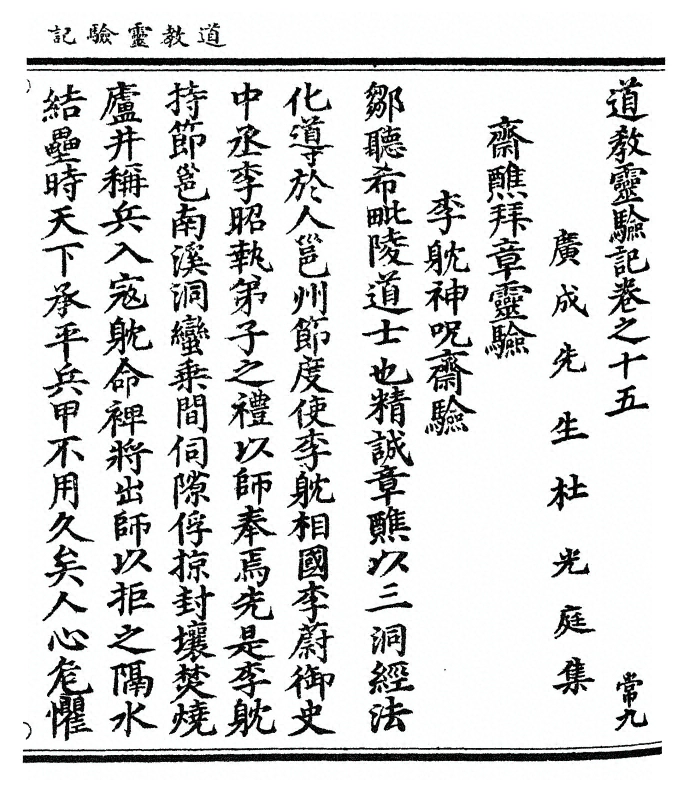 道教靈驗記
道教靈驗記卷之十五
常九
廣成先生杜光庭集
齋醮拜章靈驗
李躭神呪齋驗
鄒聽希毗陵道士也精誠章醮以三洞經法
化導於人邕州節度使李躭相國李蔚御史
中丞李昭執弟子之禮以師奉焉先是李躭
持節邕南溪洞蠻乗間伺隙俘掠封壤焚燒
廬井稱兵入㓂躭命裨將出師以拒之隔水
結壘時天下承平兵甲不用久矣人心危懼